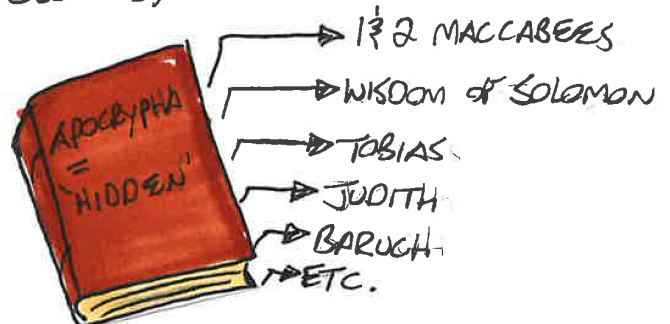 APOCRYPHA
=
"HIDDEN"
1 & 2 MACCABEES
WISDOM OF SOLOMON
TOBIAS
JUDITH
BARUCH
ETC.